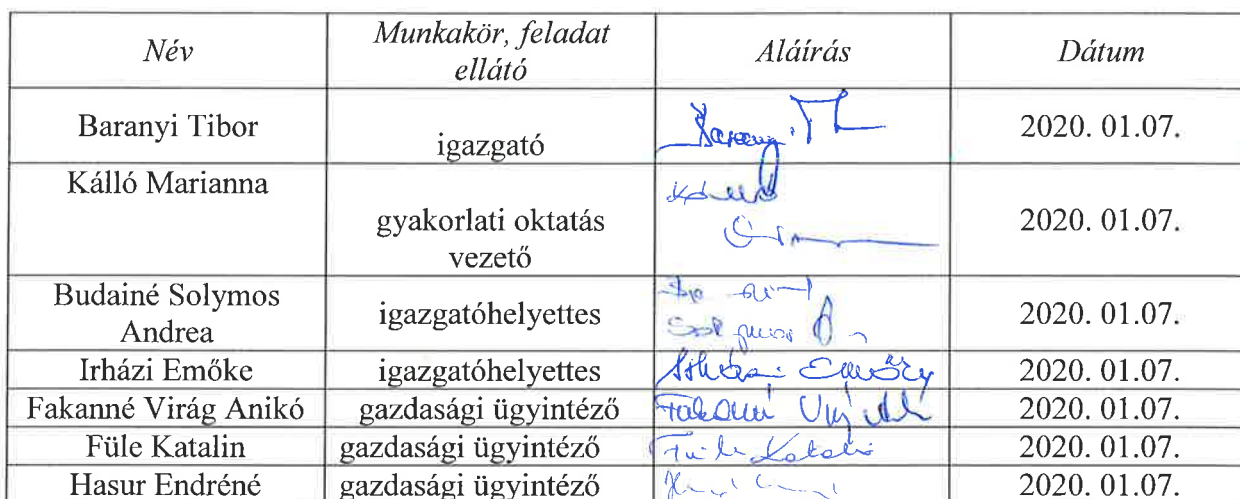 Név Munkakör, feladat ellátó Aláírás Dátum
Baranyi Tibor igazgató 2020. 01.07.
Kálló Marianna gyakorlati oktatás vezető 2020. 01.07.
Budainé Solymos Andrea igazgatóhelyettes 2020. 01.07.
Irházi Emőke igazgatóhelyettes Irházi Emőke 2020. 01.07.
Fakanné Virág Anikó gazdasági ügyintéző 2020. 01.07.
Füle Katalin gazdasági ügyintéző Füle Katalin 2020. 01.07.
Hasur Endréné gazdasági ügyintéző 2020. 01.07.